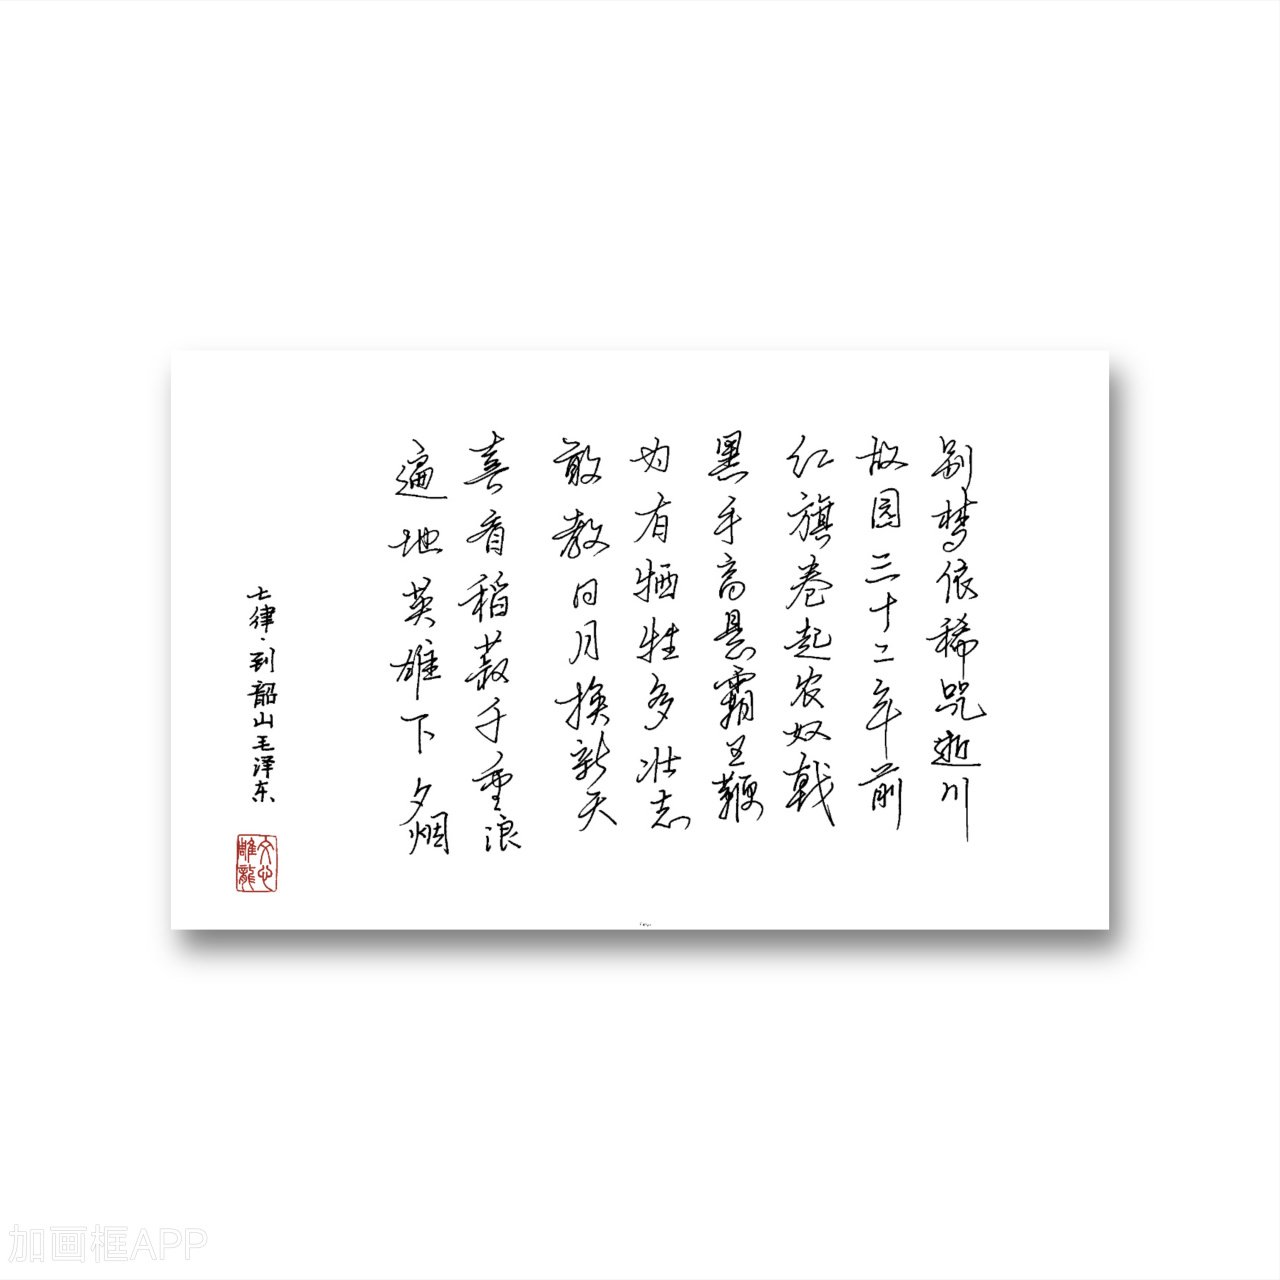 别梦依稀咒逝川
故园三十二年前
红旗卷起农奴戟
黑手高悬霸王鞭
为有牺牲多壮志
敢教日月换新天
喜看稻菽千重浪
遍地英雄下夕烟
七律·到韶山毛泽东
文心雕龍
加画框APP